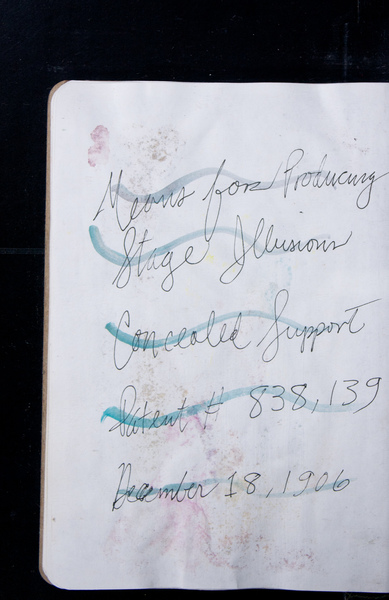 Means for Producing
Stage Illusions
Concealed Support
Patent # 838,139
December 18, 1906